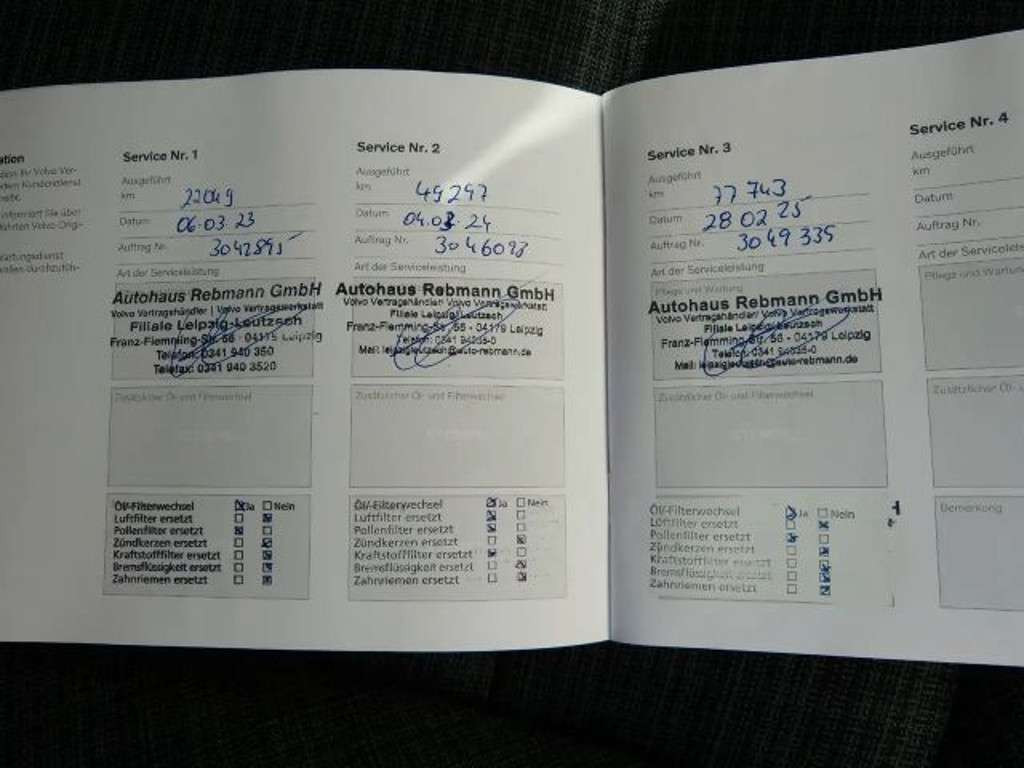 Service Nr. 1
Ausgeführt
km 22049
Datum 06.03.23
Auftrag Nr. 3042895
Art der Serviceleistung
Autohaus Rebmann GmbH
Volvo Vertragshändler | Volvo Vertragswerkstatt
Filiale Leipzig-Leutzsch
Franz-Flemming-Str. 56 - 04179 Leipzig
Telefon: 0341 940 350
Telefax: 0341 940 3520
Zusätzlicher Öl- und Filterwechsel
Öl/-Filterwechsel Ja Nein
Luftfilter ersetzt
Pollenfilter ersetzt
Zündkerzen ersetzt
Kraftstofffilter ersetzt
Bremsflüssigkeit ersetzt
Zahnriemen ersetzt
Service Nr. 2
Ausgeführt
km 49297
Datum 04.03.24
Auftrag Nr. 3046093
Art der Serviceleistung
Autohaus Rebmann GmbH
Volvo Vertragshändler/ Volvo Vertragswerkstatt
Filiale Leipzig-Leutzsch
Franz-Flemming-Str. 56 - 04179 Leipzig
Telefon: 0341 94035-0
Mail: leipzigleutzsch@auto-rebmann.de
Zusätzlicher Öl- und Filterwechsel
Öl/-Filterwechsel Ja Nein
Luftfilter ersetzt
Pollenfilter ersetzt
Zündkerzen ersetzt
Kraftstofffilter ersetzt
Bremsflüssigkeit ersetzt
Zahnriemen ersetzt
Service Nr. 3
Ausgeführt
km 77743
Datum 28 02 25
Auftrag Nr. 3049335
Art der Serviceleistung
Pflege und Wartung
Autohaus Rebmann GmbH
Volvo Vertragshändler/ Volvo Vertragswerkstatt
Filiale Leipzig-Leutzsch
Franz-Flemming-Str. 56 - 04179 Leipzig
Telefon: 0341 94035-0
Mail: leipzigleutzsch@auto-rebmann.de
Zusätzlicher Öl- und Filterwechsel
Öl/-Filterwechsel Ja Nein
Luftfilter ersetzt
Pollenfilter ersetzt
Zündkerzen ersetzt
Kraftstofffilter ersetzt
Bremsflüssigkeit ersetzt
Zahnriemen ersetzt
Service Nr. 4
Ausgeführt
km
Datum
Auftrag Nr.
Art der Servicelei
Pflege und Wartun
Zusätzlicher Öl- u
Bemerkung